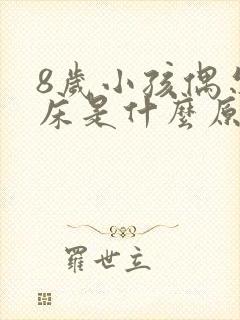 8歲小孩偶
床是什麼原
羅世立